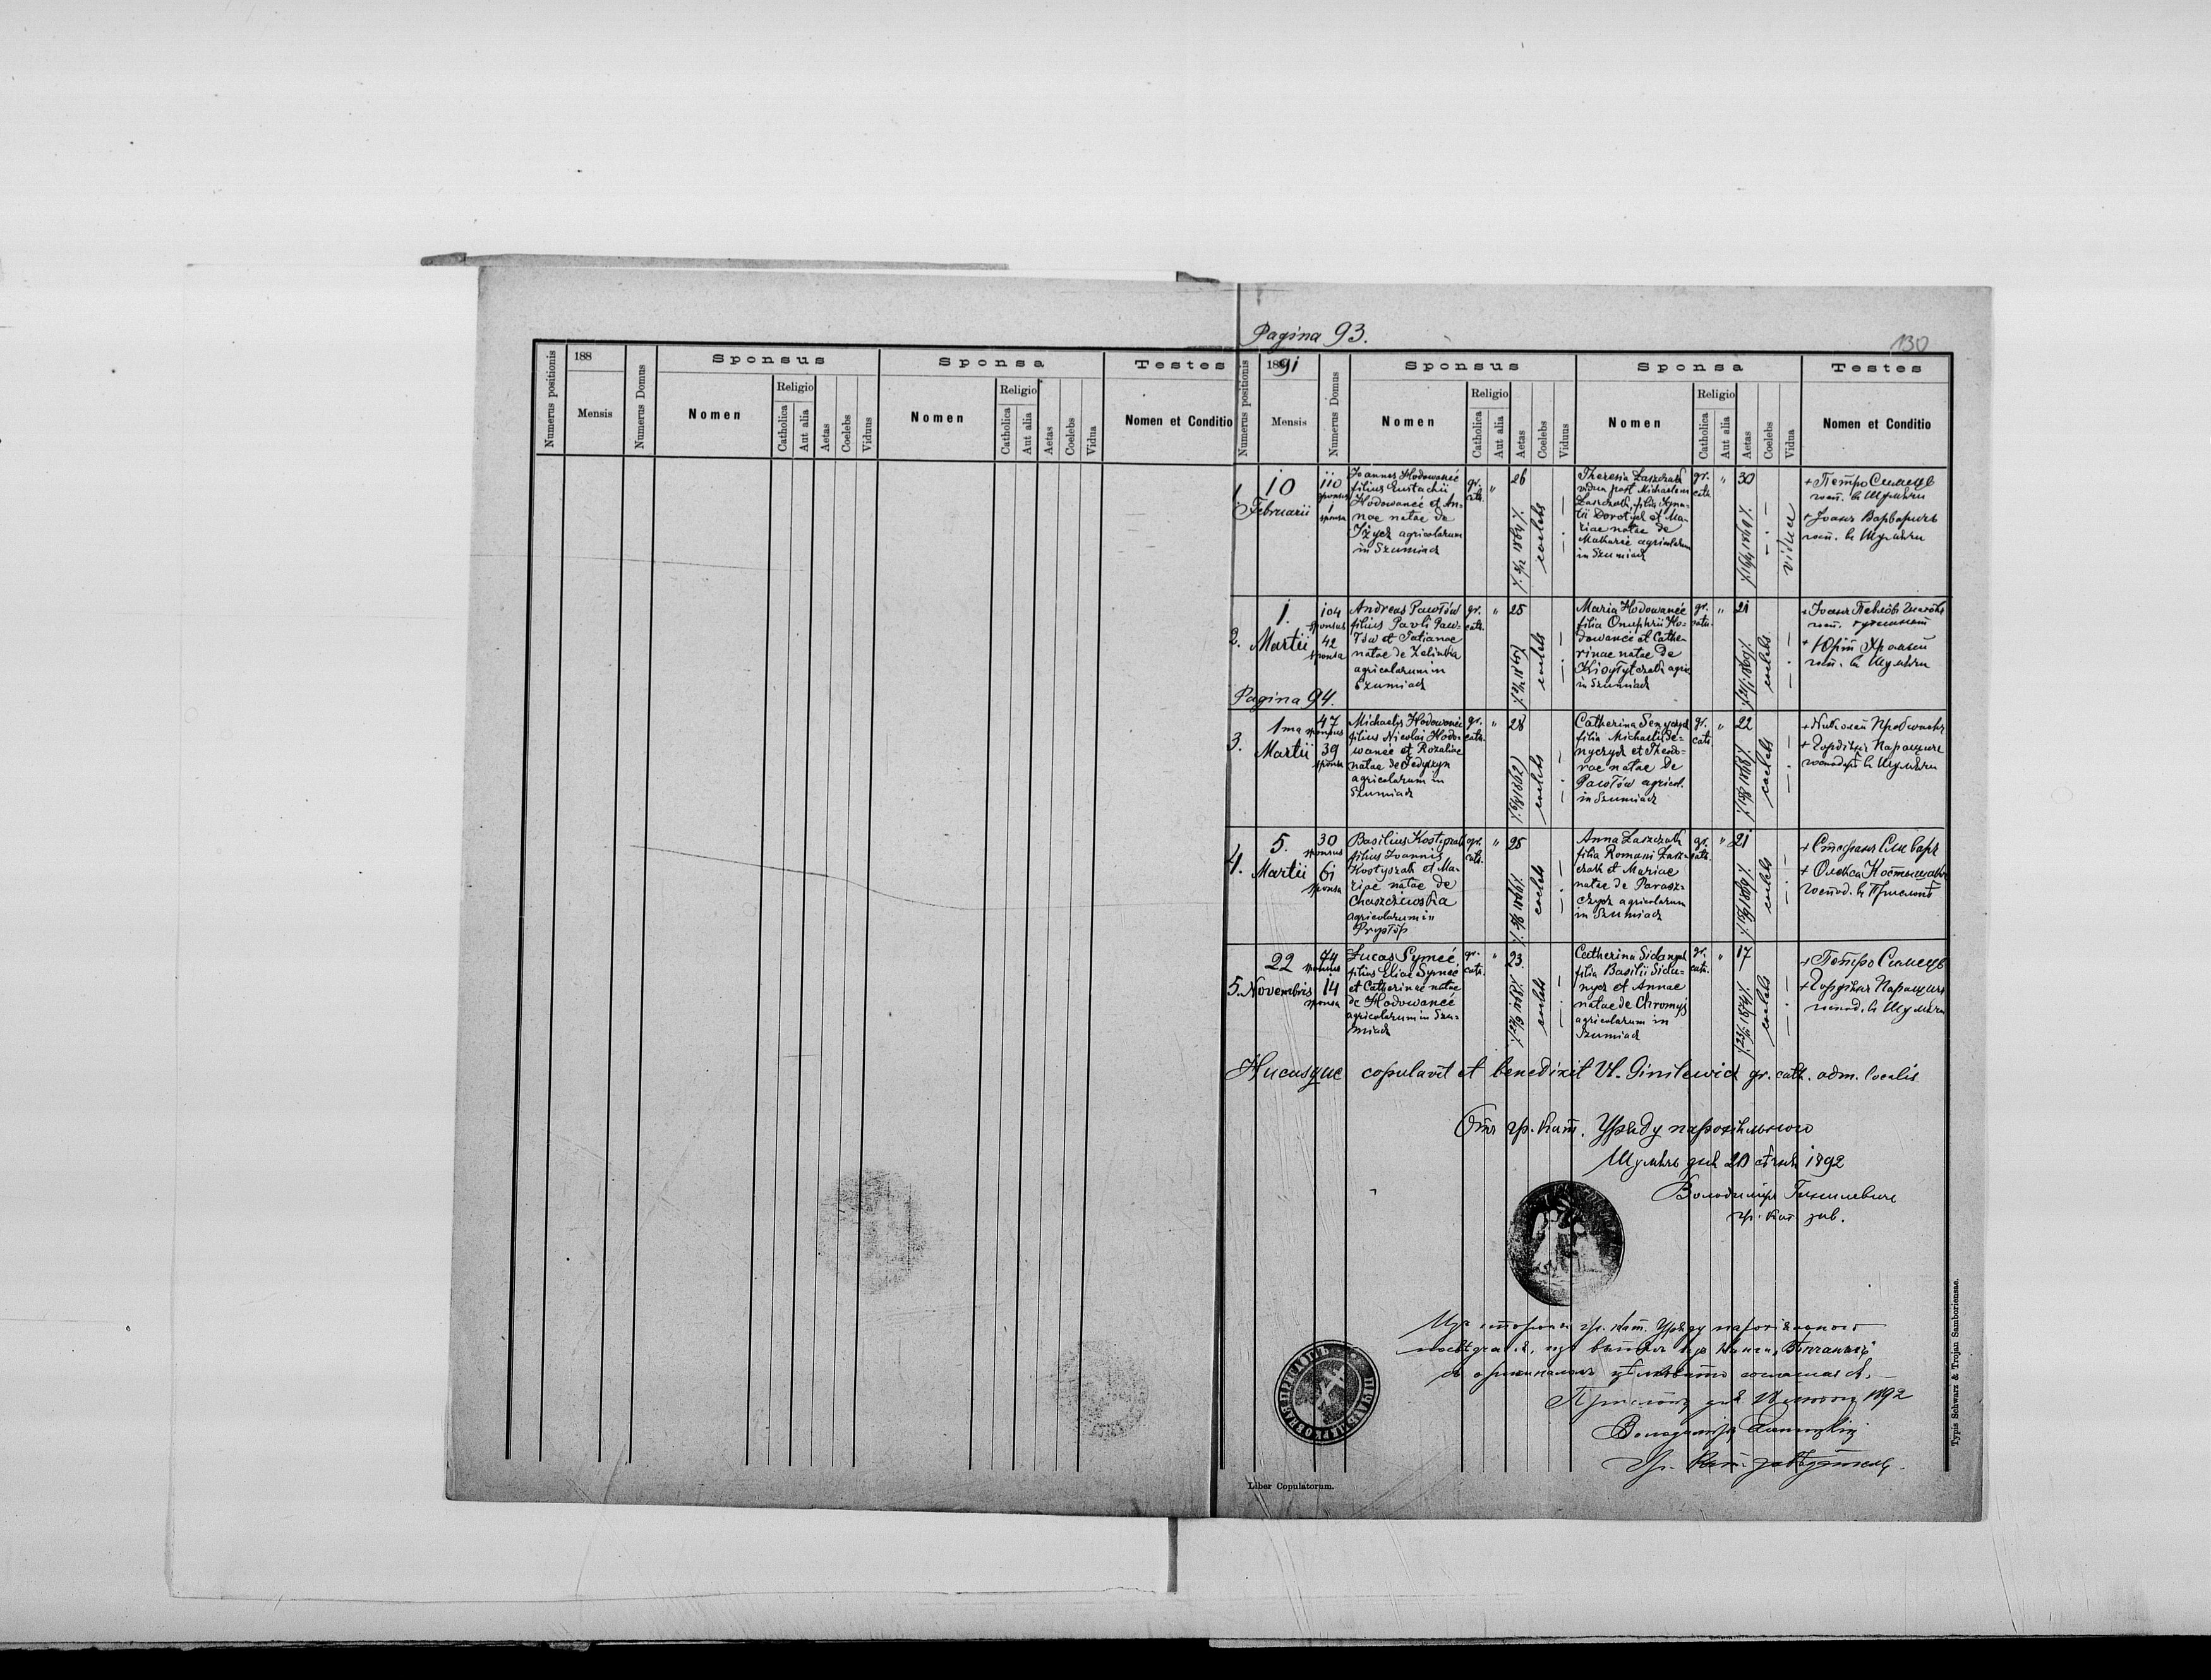 Pagina 93.
130
Numerus positionis
188
Mensis
Numerus Domus
Sponsus
Nomen
Religio
Catholica
Aut alia
Aetas
Coelebs
Viduus
Sponsa
Nomen
Religio
Catholica
Aut alia
Aetas
Coelebs
Vidua
Testes
Nomen et Conditio
Numerus positionis
1891
Mensis
Numerus Domus
Sponsus
Nomen
Religio
Catholica
Aut alia
Aetas
Coelebs
Viduus
Sponsa
Nomen
Religio
Catholica
Aut alia
Aetas
Coelebs
Vidua
Testes
Nomen et Conditio
1.
10
Februarii
110
sponsus
1
sponsa
Joannes Hodowaneć
filius Eustachii
Hodowaneć et An-
nae natae de
Iżycz agricolarum
in Szumiacz
gr.
cath.
"
26
coelebs
Theresia Łaszczak
vidua post Michaelem
Łaszczak, filia Igna-
tii Dorotycz et Ma-
riae natae de
agricolarum
in Szumiacz
gr.
cath.
"
30
vidua
+ Петро Симець
госп. въ Шумячи
+ Іоанъ Варваричъ
госп. въ Шумячи
2.
1.
Martii
104
sponsus
42
sponsa
Andreas Pawłów
filius Pavli Paw-
łów et Tatianae
natae de Zelinka
agricolarum in
Szumiacz
gr.
cath.
"
25
coelebs
Maria Hodowaneć
filia Onuphrii Ho-
dowaneć et Cathe-
rinae natae de
agric.
in Szumiacz
gr.
cath.
"
21
coelebs
+ Іоанъ Павлôвъ
госп.
+ Юрій Хромый
госп. въ Шумячи
Pagina 94.
3.
1ma
Martii
47
sponsus
39
sponsa
Michaelis Hodowaneć
filius Nicolai Hodo-
waneć et Rozaliae
natae de Fedyszyn
agricolarum in
Szumiacz
gr.
cath.
"
28
coelebs
Catherina Senyczycz
filia Michaelis Se-
nyczycz et Theodo-
rae natae de
Pawłów agricol.
in Szumiacz
gr.
cath.
"
22
coelebs
+ Николай
+ Гордіянъ Паращичъ
господарѣ въ Шумячи
4.
5.
Martii
30
sponsus
61
sponsa
Basilius Kostyszak
filius Joannis
Kostyszak et Ma-
riae natae de
Chaszczowska
agricolarum in
Prysłôp
gr.
cath.
"
25
coelebs
Anna Łaszczak
filia Romani Łasz-
czak et Mariae
natae de Parasz-
czycz agricolarum
in Szumiacz
gr.
cath.
"
21
coelebs
+ Стефанъ
+ Олекса Костышакъ
господ. въ Прислопѣ
5.
22
Novembris
74
sponsus
14
sponsa
Lucas Symeć
filius Eliae Symeć
et Catherinae natae
de Hodowaneć
agricolarum in Szu-
miacz
gr.
cath.
"
23.
coelebs
Catherina Sidanycz
filia Basilii Sida-
nycz et Annae
natae de Chromyj
agricolarum in
Szumiacz
gr.
cath.
"
17
coelebs
+ Петро Симець
+ Гордіянъ Паращичъ
господ. въ Шумячи
Hucusque copulavit et benedixit Vl. Ginilewicz gr. cath. adm. localis
Отъ гр. кат. Уряду парохіяльного
Шумячь дня 20 1892
Володимиръ Гинилевичъ
гр. кат. зав.
гр. кат. Уряду
1892
Володимиръ
Гр. кат. завѣдатель.
Liber Copulatorum.
Typis Schwarz & Trojan Samboriensae.